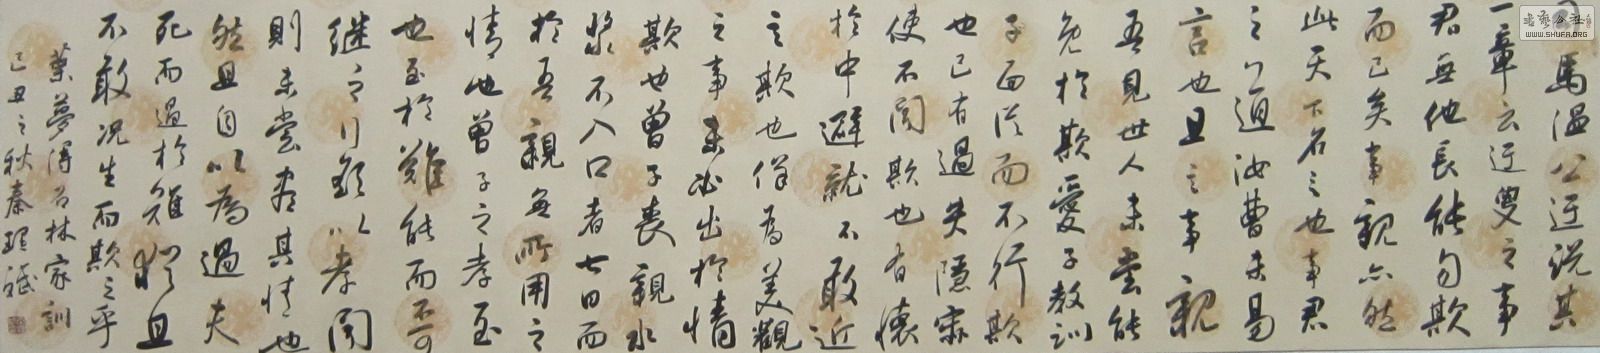 司馬温公迂说其
一章云迂叟之事
君無他長能勿欺
而已矣事親亦然
此天下名言也事君
之道汝曹未易
言也且言事親
吾見世人未嘗能
免於欺愛子教訓
子面從而不行欺
也己有過失隱蔽
使不聞欺也有懷
於中避就不敢近
言欺也佯為美觀
之事未必出於情
欺也曾子喪親水
漿不入口者七日而
於吾親無所用之
情也曾子之孝至
也至於難能而不可
继之行以孝聞
則未嘗盡其情也
然且自以為過夫
死而過於难猶且
不敢况生而欺之乎
葉夢得石林家訓
己丑之秋秦理
書藝公社
WWW.SHUFA.ORG